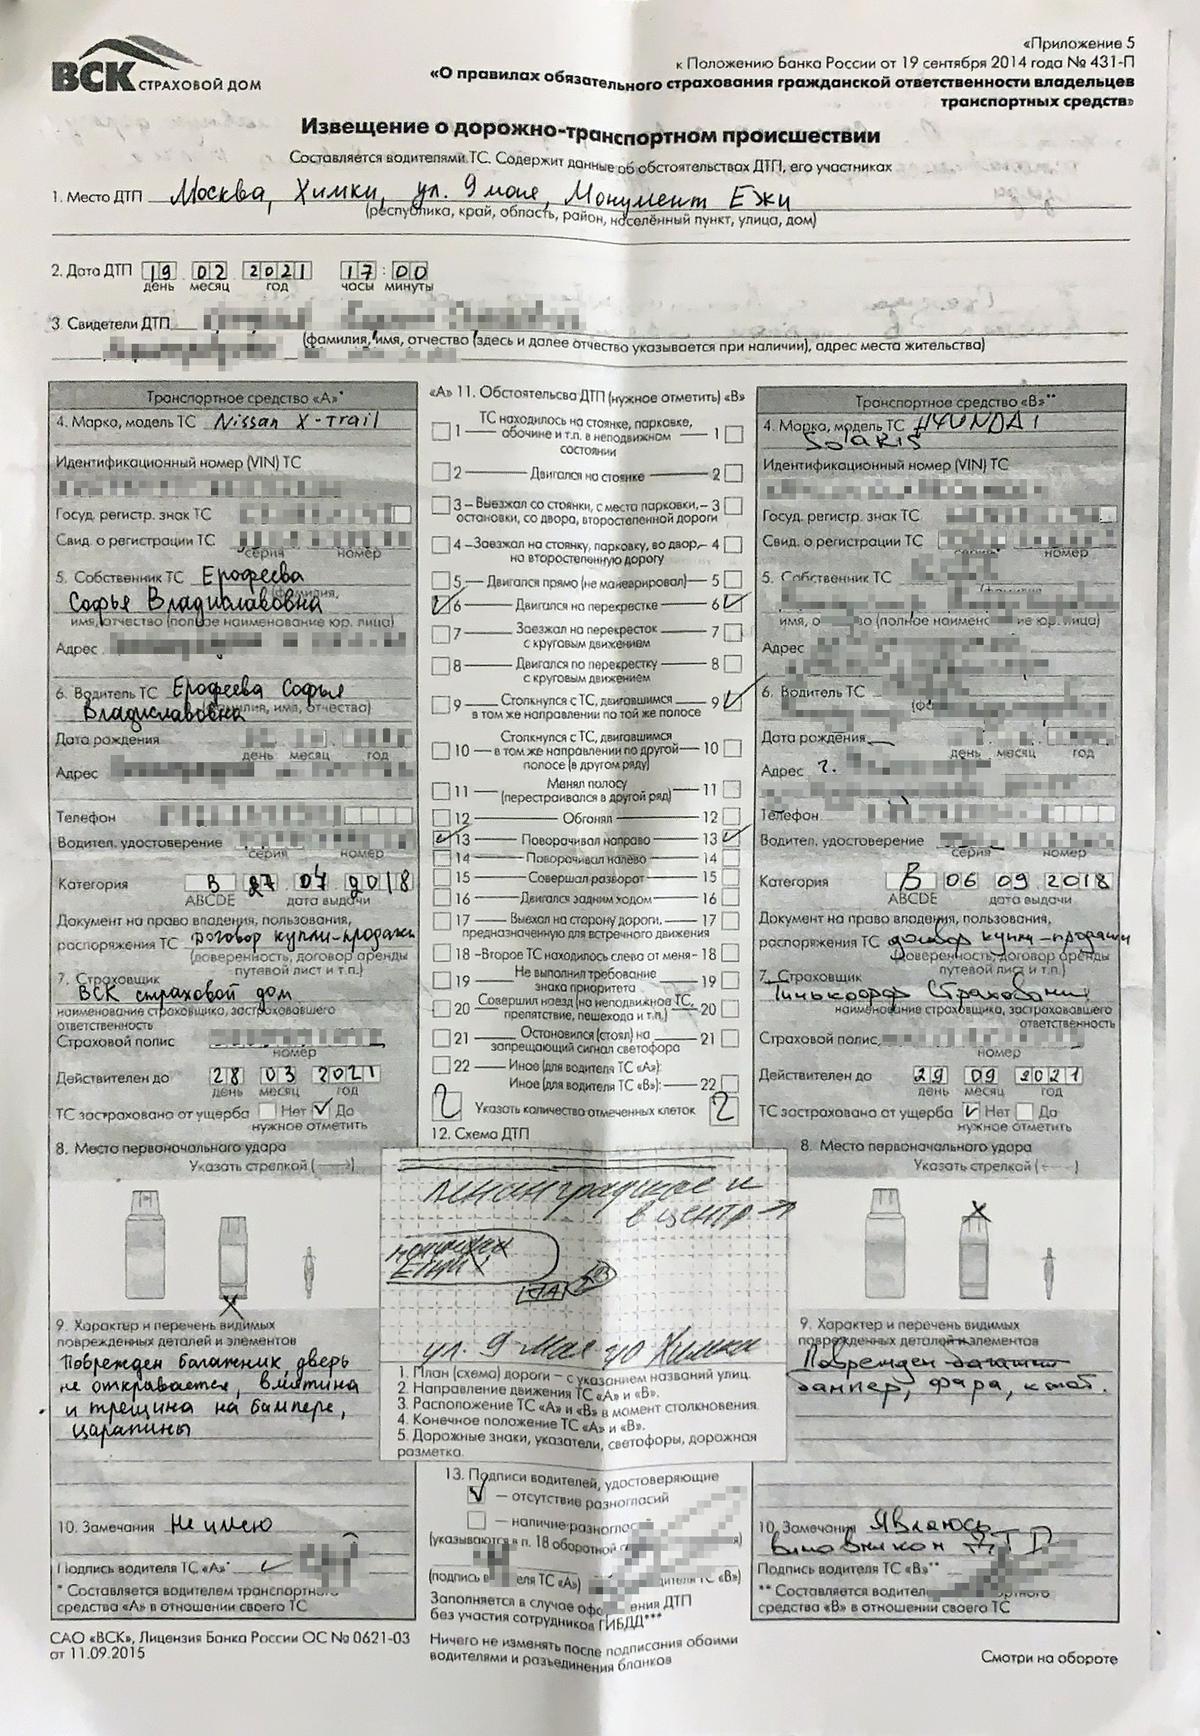 ВСК СТРАХОВОЙ ДОМ
«Приложение 5
к Положению Банка России от 19 сентября 2014 года № 431-П
«О правилах обязательного страхования гражданской ответственности владельцев
транспортных средств»
Извещение о дорожно-транспортном происшествии
Составляется водителями ТС. Содержит данные об обстоятельствах ДТП, его участниках
1. Место ДТП Москва, Химки, ул. 9 мая, Монумент Ежи
(республика, край, область, район, населённый пункт, улица, дом)
2. Дата ДТП 19 02 2021 17:00
день месяц год часы минуты
3. Свидетели ДТП
(фамилия, имя, отчество (здесь и далее отчество указывается при наличии), адрес места жительства)
Транспортное средство «А»*
4. Марка, модель ТС Nissan X-Trail
Идентификационный номер (VIN) ТС
Госуд. регистр. знак ТС
Свид. о регистрации ТС
серия номер
5. Собственник ТС Ерофеева
(фамилия,
Софья Владиславовна
имя, отчество (полное наименование юр. лица)
Адрес
6. Водитель ТС Ерофеева Софья
Владиславовна
(фамилия, имя, отчество)
Дата рождения
день месяц год
Адрес
Телефон
Водител. удостоверение
серия номер
Категория В 27 04 2018
ABCDE дата выдачи
Документ на право владения, пользования,
распоряжения ТС договор купли-продажи
(доверенность, договор аренды
путевой лист и т.п.)
7. Страховщик
ВСК страховой дом
наименование страховщика, застраховавшего
ответственность
Страховой полис
номер
Действителен до 28 03 2021
день месяц год
ТС застраховано от ущерба Нет Да
нужное отметить
8. Место первоначального удара
Указать стрелкой (→)
9. Характер и перечень видимых
поврежденных деталей и элементов
Поврежден багажник, дверь
не открывается, вмятина
и трещина на бампере,
царапины
10. Замечания Не имею
Подпись водителя ТС «А»*
* Составляется водителем транспортного
средства «А» в отношении своего ТС
«А» 11. Обстоятельсва ДТП (нужное отметить) «В»
1 ТС находилось на стоянке, парковке, 1
обочине и т.п. в неподвижном
состоянии
2 Двигался на стоянке 2
3 – Выезжал со стоянки, с места парковки, – 3
остановки, со двора, второстепенной дороги
4 – Заезжал на стоянку, парковку, во двор, – 4
на второстепенную дорогу
5 – Двигался прямо (не маневрировал) – 5
6 Двигался на перекрестке 6
7 Заезжал на перекресток 7
с круговым движением
8 Двигался по перекрестку 8
с круговым движением
9 Столкнулся с ТС, двигавшимся 9
в том же направлении по той же полосе
Столкнулся с ТС, двигавшимся
10 — в том же направлении по другой 10
полосе (в другом ряду)
11 Менял полосу 11
(перестраивался в другой ряд)
12 Обгонял 12
13 Поворачивал направо 13
14 Поворачивал налево 14
15 Совершал разворот 15
16 Двигался задним ходом 16
17 Выехал на сторону дороги, 17
предназначенную для встречного движения
18 – Второе ТС находилось слева от меня – 18
19 Не выполнил требование 19
знака приоритета
20 Совершил наезд (на неподвижное ТС, 20
препятствие, пешехода и т.п.)
21 Остановился (стоял) на 21
запрещающий сигнал светофора
22 Иное (для водителя ТС «А»):
Иное (для водителя ТС «В»): 22
2 Указать количество отмеченных клеток 2
12. Схема ДТП
Ленинградское ш
в центр →
ул. 9 Мая
1. План (схема) дороги – с указанием названий улиц.
2. Направление движения ТС «А» и «В».
3. Расположение ТС «А» и «В» в момент столкновения.
4. Конечное положение ТС «А» и «В».
5. Дорожные знаки, указатели, светофоры, дорожная
разметка.
13. Подписи водителей, удостоверяющие
— отсутствие разногласий
— наличие
(указываются в п. 18 оборотной
(подпись
ТС «А»)
ТС «В»)
Заполняется в случае
ДТП
без участия сотрудников ГИБДД***
Ничего не изменять после подписания обоими
водителями и разъединения бланков
Транспортное средство «В»**
4. Марка, модель ТС HYUNDAI
SOLARIS
Идентификационный номер (VIN) ТС
Госуд. регистр. знак ТС
Свид. о регистрации ТС
серия номер
5. Собственник ТС
Адрес
6. Водитель ТС
Дата рождения
день месяц год
Адрес г.
Телефон
Водител. удостоверение
серия номер
Категория В 06 09 2018
ABCDE дата выдачи
Документ на право владения, пользования,
распоряжения ТС договор купли-продажи
доверенность, договор аренды
путевой лист и т.п.)
7. Страховщик
Тинькофф Страхование
наименование страховщика, застраховавшего
ответственность
Страховой полис
номер
Действителен до 29 09 2021
день месяц год
ТС застраховано от ущерба Нет Да
нужное отметить
8. Место первоначального удара
Указать стрелкой (←)
9. Характер и перечень видимых
поврежденных деталей и элементов
Поврежден
бампер, фара, капот.
10. Замечания Являюсь
виновником ДТП
Подпись водителя ТС «В»**
** Составляется
средства «В» в отношении своего ТС
САО «ВСК», Лицензия Банка России ОС № 0621-03
от 11.09.2015
Смотри на обороте